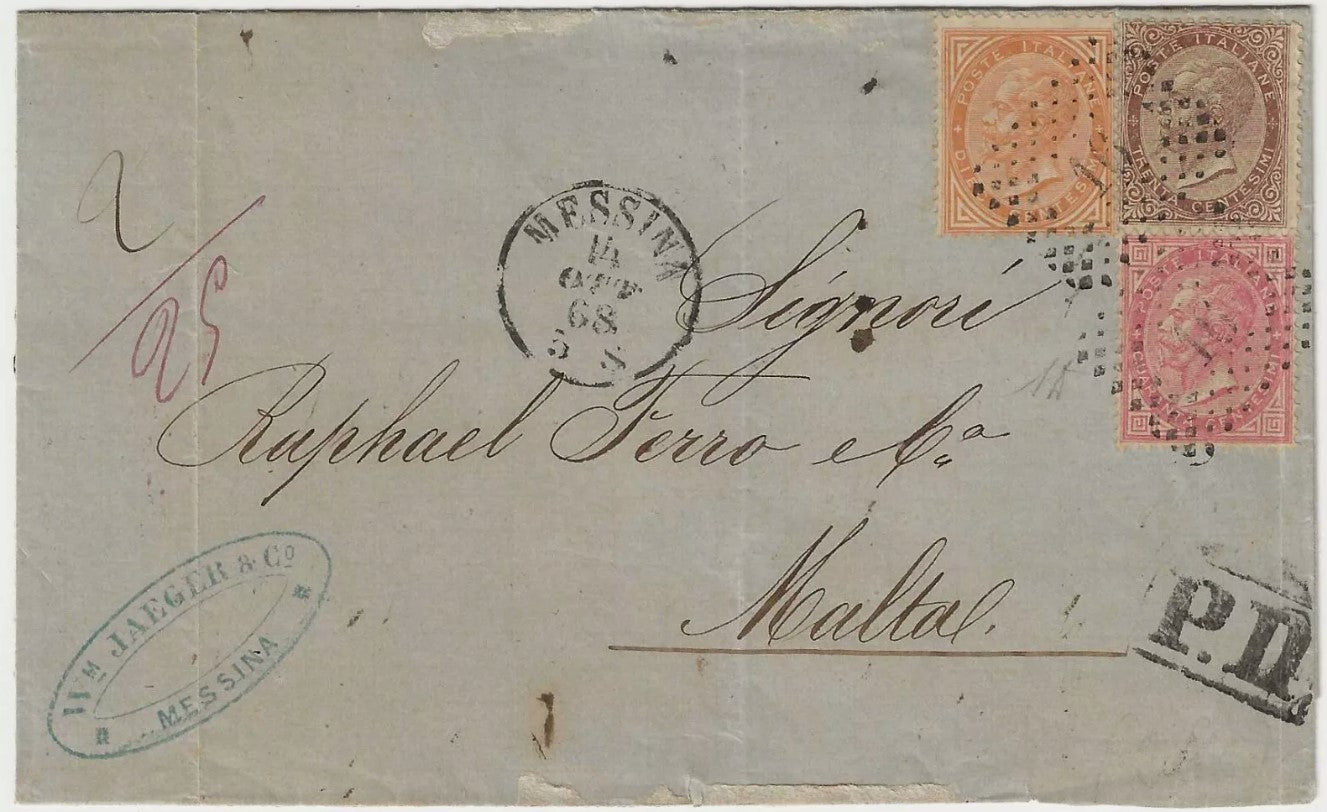 POSTE ITALIANE
CENTESIMI
POSTE ITALIANE
CENTESIMI
POSTE ITALIANE
MESSINA
14
OTT
68
5 S
2
25
Signori
Raphael Ferro e Ca
Malta.
Wᴹ JAEGER & Cº
MESSINA
P.D.